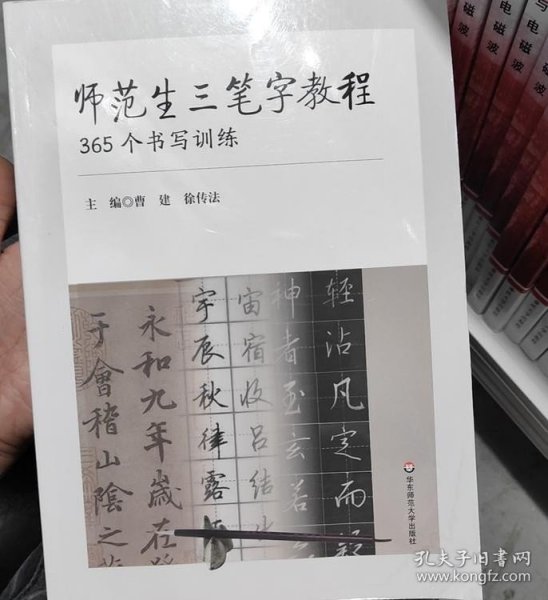 师范生三笔字教程
365个书写训练
主 编◎曹 建 徐传法
轻沾凡定而
神者至玄若
宙宿收吕结
宇辰秋律露
永和九年歲在
于會稽山陰之
华东师范大学出版社
与电磁波
电磁波
孔夫子旧书网
www.kongfz.com